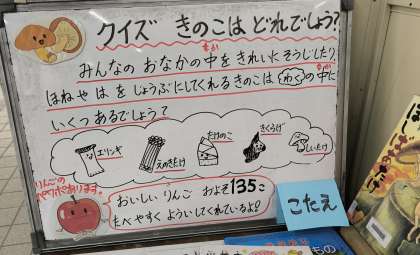 クイズ きのこは どれでしょう?
みんなの おなかの中を きれいに そうじしたり
ほねや はを じょうぶにしてくれるきのこは (わく)の中に
いくつ あるでしょう?
エリンギ
えのきたけ
たけのこ
きくらげ
しいたけ
りんごの
おいしい りんご およそ135こ
たべやすく よういしてくれているよ!
こたえ